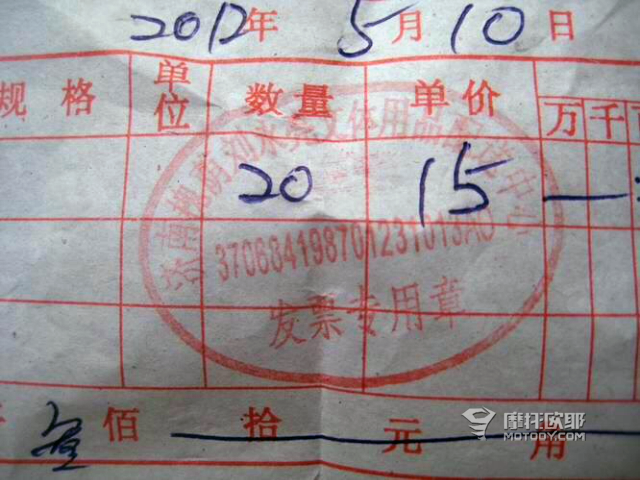 2012年 5月10日
规格 单位 数量 单价 万 千
20 15
济南槐荫刘永亮文体用品配货中心
370684198701231013A0
发票专用章
叁佰 拾 元 角
摩托欧耶
MOTOOY.COM